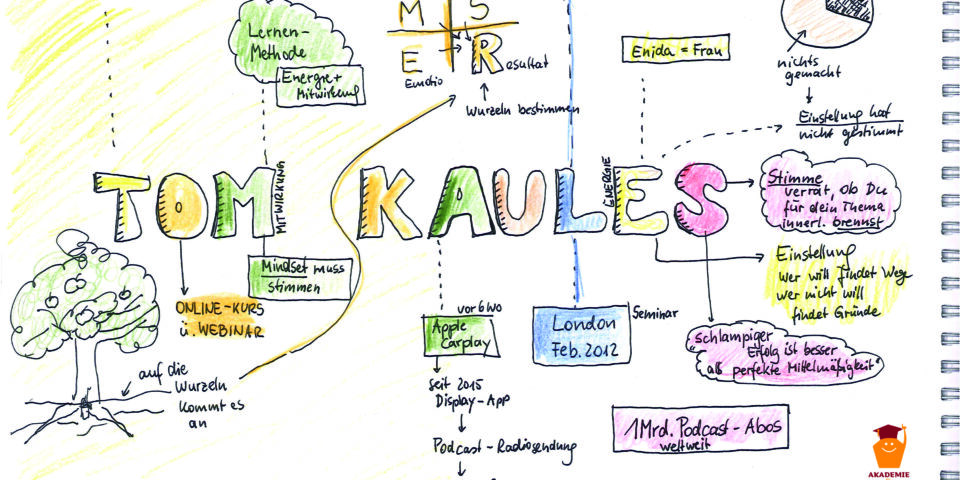 Lernen-
Methode
Energie +
Mitwirkung
M S
E Resultat
Emotio
Wurzeln bestimmen
Enida = Frau
nichts
gemacht
Einstellung hat
nicht gestimmt
TOM KAULES
MITWIRKUNG
ENERGIE
Stimme
verrät, ob Du
für dein Thema
innerl. brennst
Mindset muss
stimmen
ONLINE-KURS
ü. WEBINAR
Einstellung
wer will findet Wege
wer nicht will
findet Gründe
vor 6 Wo
Apple
Carplay
London
Feb. 2012
Seminar
"schlampiger
Erfolg ist besser
als perfekte Mittelmäßigkeit"
auf die
Wurzeln
kommt es
an
seit 2015
Display-App
Podcast-Radiosendung
1Mrd. Podcast-Abos
weltweit
AKADEMIE